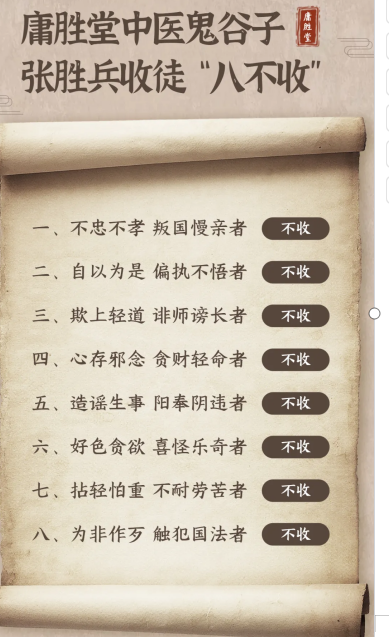 庸胜堂中医鬼谷子
庸胜堂
张胜兵收徒“八不收”
一、不忠不孝 叛国慢亲者 不收
二、自以为是 偏执不悟者 不收
三、欺上轻道 诽师谤长者 不收
四、心存邪念 贪财轻命者 不收
五、造谣生事 阳奉阴违者 不收
六、好色贪欲 喜怪乐奇者 不收
七、拈轻怕重 不耐劳苦者 不收
八、为非作歹 触犯国法者 不收